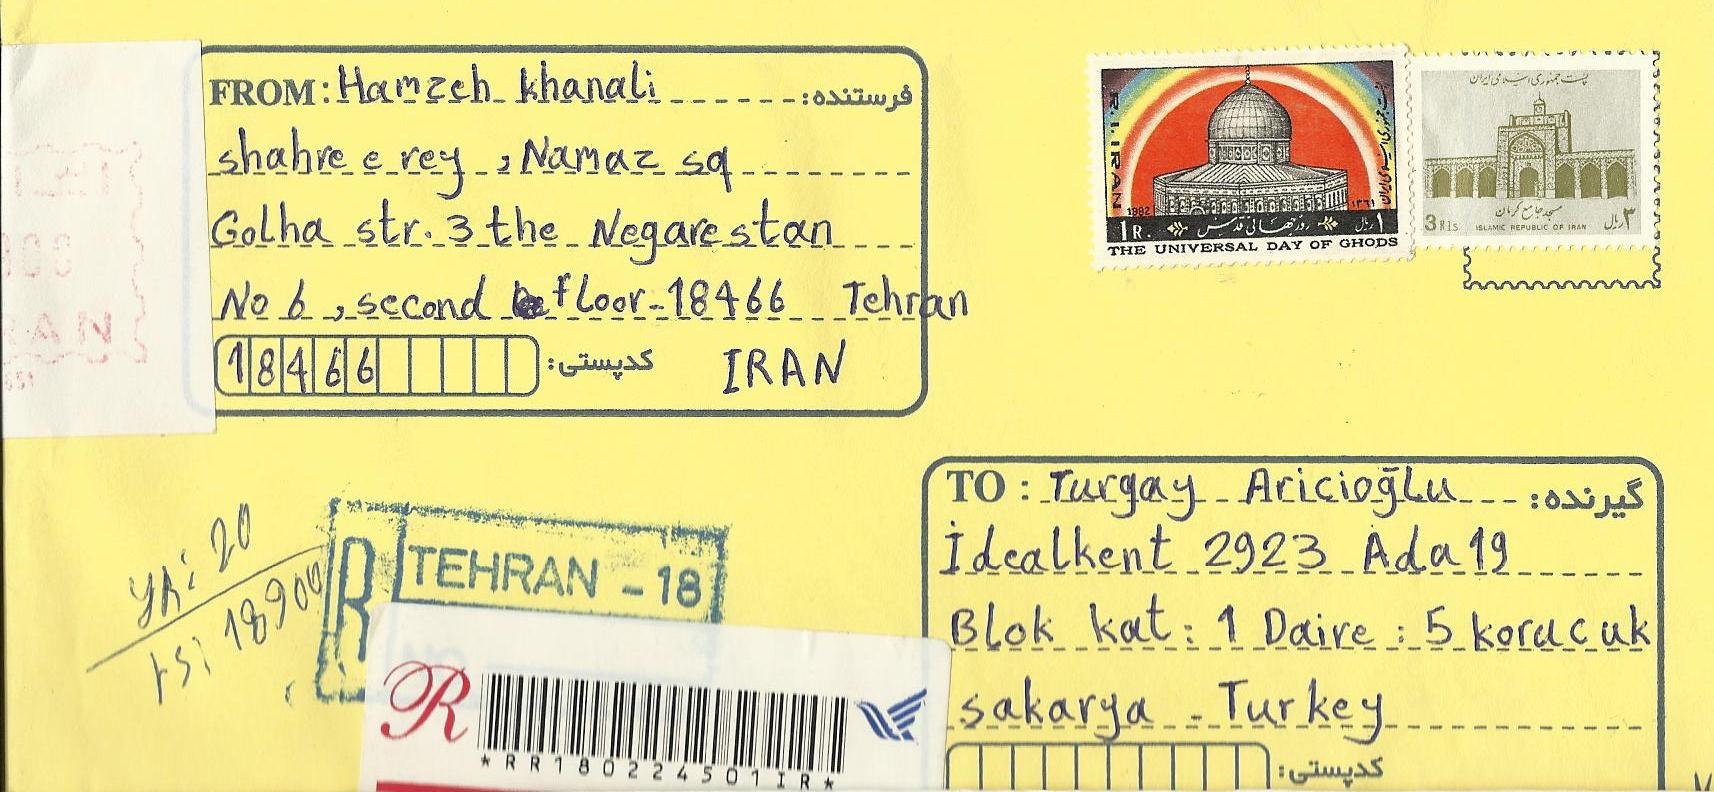 FROM: Hamzeh khanali فرستنده:
shahre e rey, Namaz sq
Golha str. 3 the Negarestan
No 6, second floor-18466 Tehran
18466 کدپستی: IRAN
R.I. IRAN
1982 ١٣٦١
1R. روز جهانی قدس ١ ریال
THE UNIVERSAL DAY OF GHODS
پست جمهوری اسلامی ایران
مسجد جامع کرمان
3 Rls ISLAMIC REPUBLIC OF IRAN ٣ ریال
TO: Turgay Aricioğlu گیرنده:
İdealkent 2923 Ada 19
Blok kat: 1 Daire: 5 koracuk
sakarya - Turkey
کدپستی:
20
18900
R TEHRAN - 18
R
*RR180224501IR*